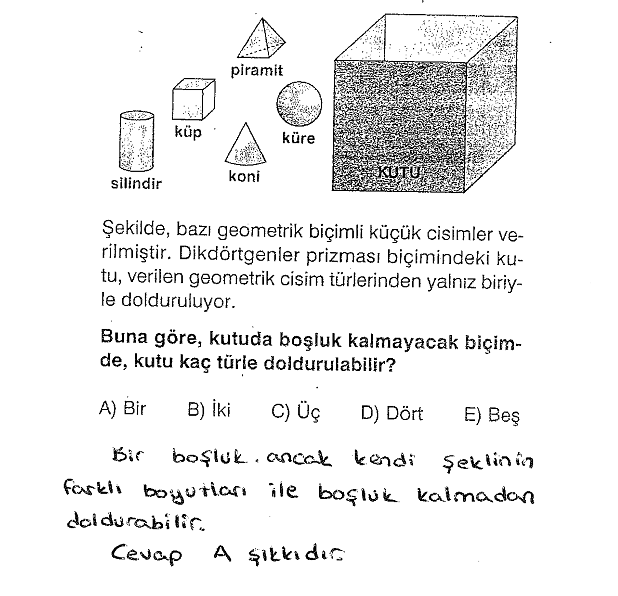 piramit
küp
küre
KUTU
koni
silindir
Şekilde, bazı geometrik biçimli küçük cisimler ve-
rilmiştir. Dikdörtgenler prizması biçimindeki ku-
tu, verilen geometrik cisim türlerinden yalnız biriy-
le dolduruluyor.
Buna göre, kutuda boşluk kalmayacak biçim-
de, kutu kaç türle doldurulabilir?
A) Bir B) İki C) Üç D) Dört E) Beş
Bir boşluk. ancak kendi şeklinin
farklı boyutları ile boşluk kalmadan
doldurabilir.
Cevap A şıkkıdır